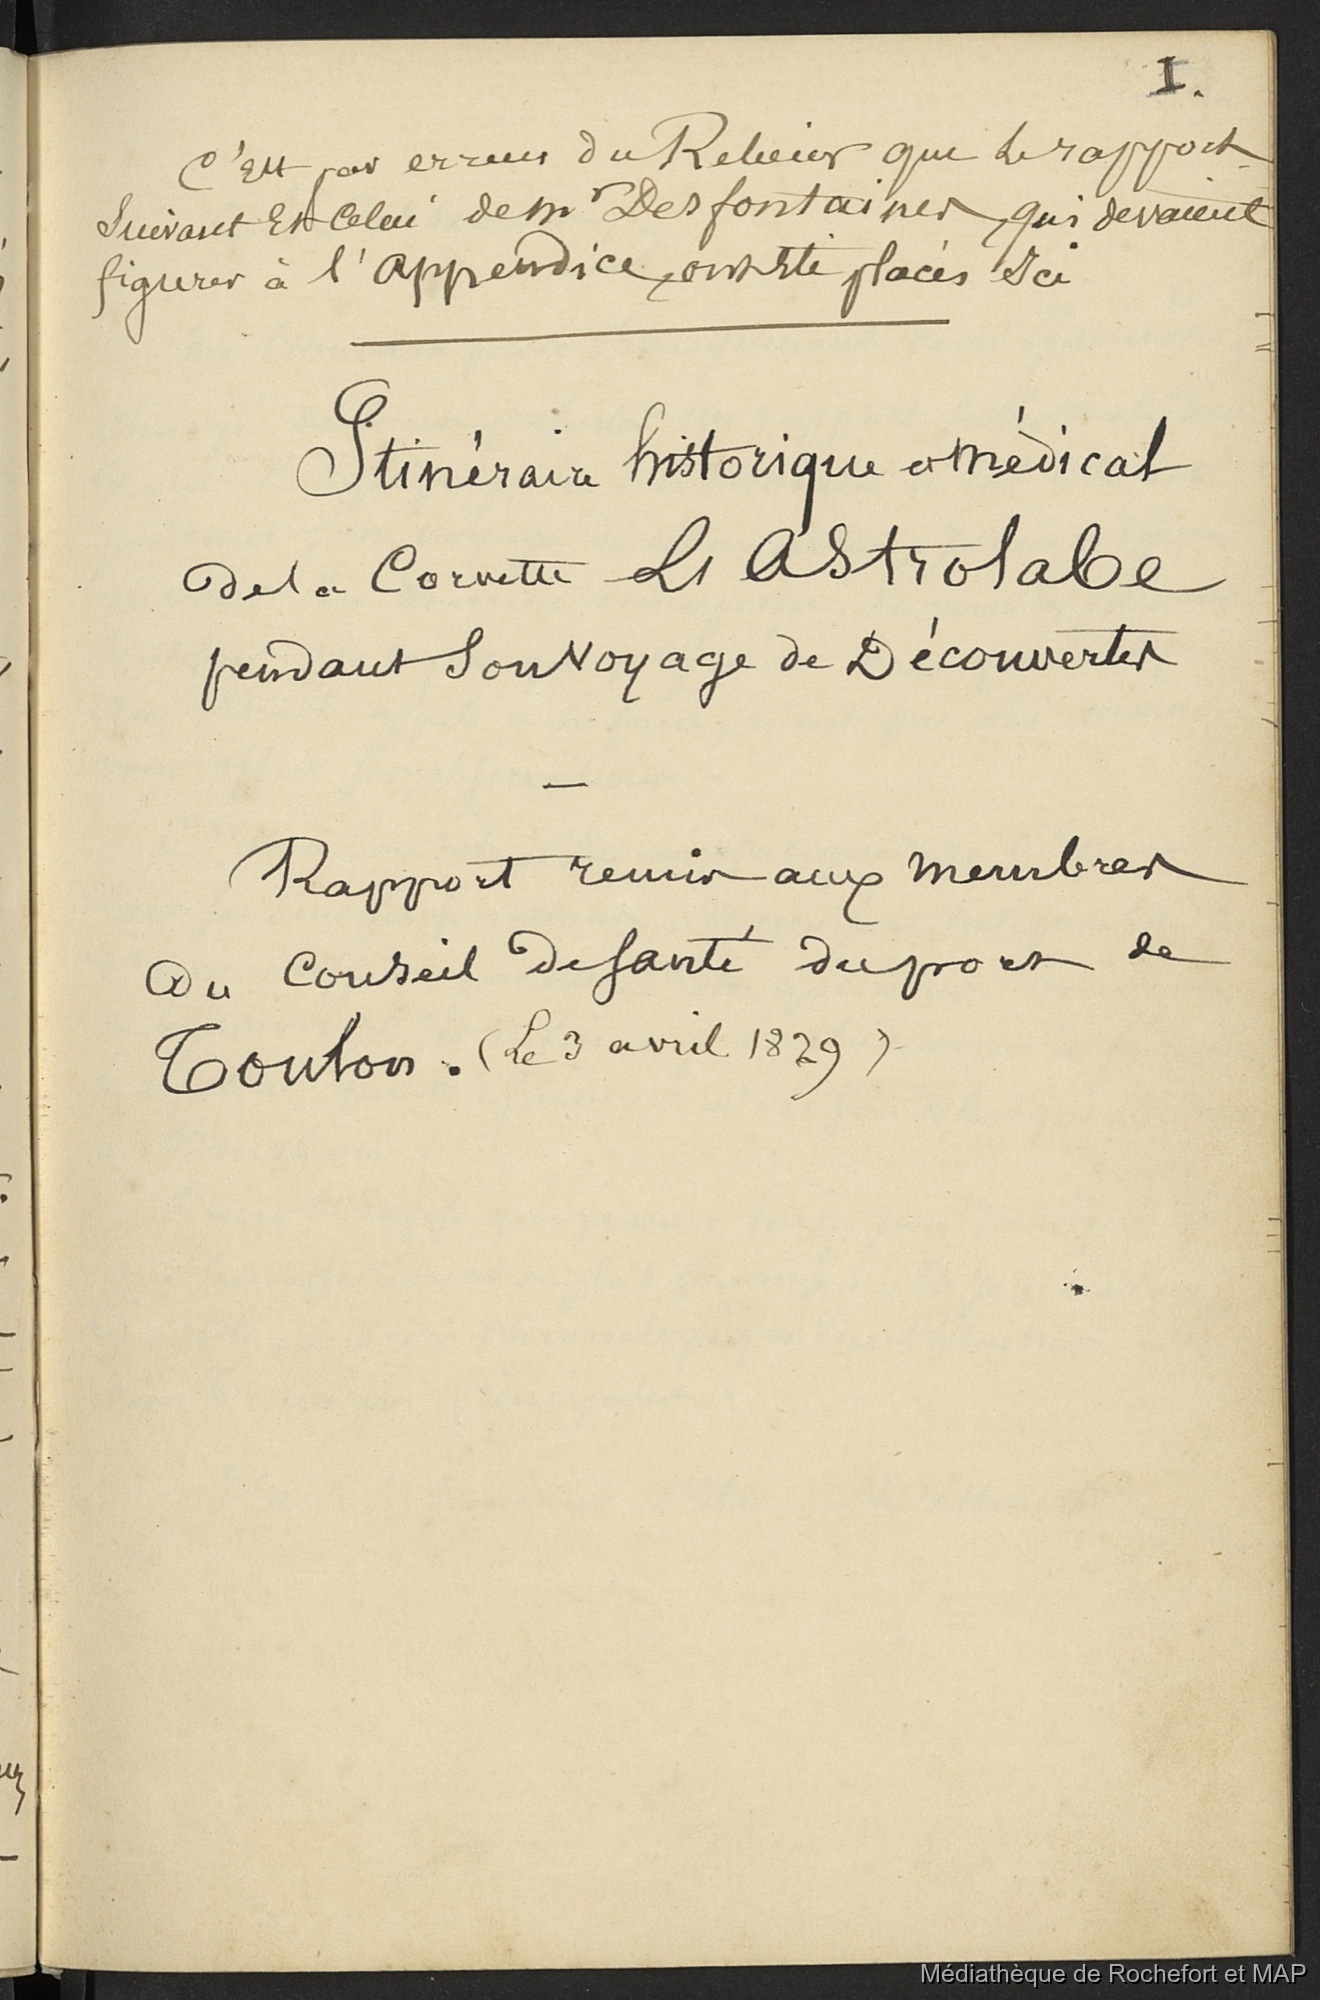 I.
C'est par erreur du Relieur que le rapport
suivant Et Celui de Mr Desfontaines, qui devaient
figurer à l'appendice, ont été placés Ici
Itinéraire historique et médical
de la Corvette L'Astrolabe
pendant son Voyage de Découvertes
—
Rapport remis aux membres
du Conseil de santé du port de
Toulon. (Le 3 avril 1829)
Médiathèque de Rochefort et MAP